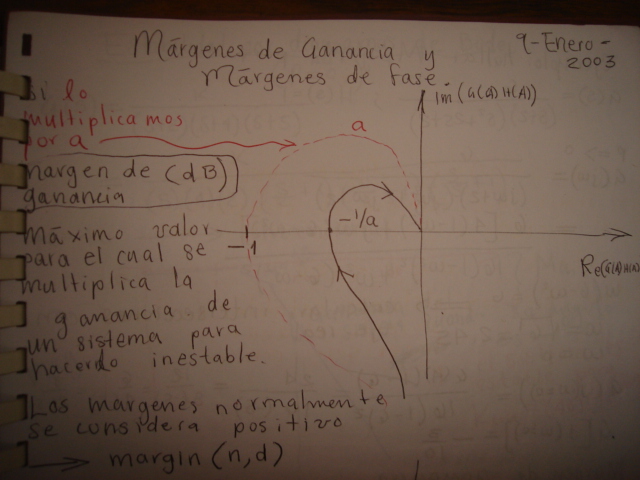 Márgenes de Ganancia y
Márgenes de fase.
9-Enero-
2003
Si lo
multiplicamos
por a
margen de (dB)
ganancia
máximo valor
para el cual se
multiplica la
ganancia de
un sistema para
hacerdo inestable.
Los margenes normalmente
se considera positivo
→ margin (n,d)
Im (G(s) H(s))
a
-1/a
-1
Re(G(s)H(s))